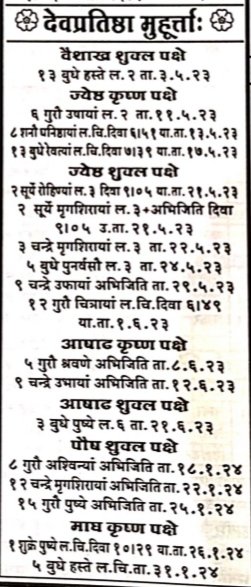 देवप्रतिष्ठा मुहूर्त्ताः
वैशाख शुक्ल पक्षे
१३ बुधे हस्ते ल.२ ता.३.५.२३
ज्येष्ठ कृष्ण पक्षे
६ गुरौ उषायां ल.२ ता.११.५.२३
८ शनौ धनिष्ठायां ल.चि.दिवा ६।५१ या.ता.१३.५.२३
१३ बुधे रेवत्यां ल.चि.दिवा ७।३९ या.ता.१७.५.२३
ज्येष्ठ शुक्ल पक्षे
२ सूर्ये रोहिण्यां ल.३ दिवा ९।०५ या.ता.२१.५.२३
२ सूर्ये मृगशिरायां ल.३+अभिजिति दिवा
९।०५ उ.ता.२१.५.२३
३ चन्द्रे मृगशिरायां ल.३ ता.२२.५.२३
५ बुधे पुनर्वसौ ल.३ ता.२४.५.२३
९ चन्द्रे उफायां अभिजिति ता.२९.५.२३
१२ गुरौ चित्रायां ल.चि.दिवा ६।४९
या.ता.१.६.२३
आषाढ कृष्ण पक्षे
५ गुरौ श्रवणे अभिजिति ता.८.६.२३
९ चन्द्रे उभायां अभिजिति ता.१२.६.२३
आषाढ शुक्ल पक्षे
३ बुधे पुष्ये ल.६ ता.२१.६.२३
पौष शुक्ल पक्षे
८ गुरौ अश्विन्यां अभिजिति ता.१८.१.२४
१२ चन्द्रे मृगशिरायां अभिजिति ता.२२.१.२४
१५ गुरौ पुष्ये अभिजिति ता.२५.१.२४
माघ कृष्ण पक्षे
१ शुक्रे पुष्ये ल.चि.दिवा १०।२९ या.ता.२६.१.२४
५ बुधे हस्ते ल.चि.ता.३१.१.२४